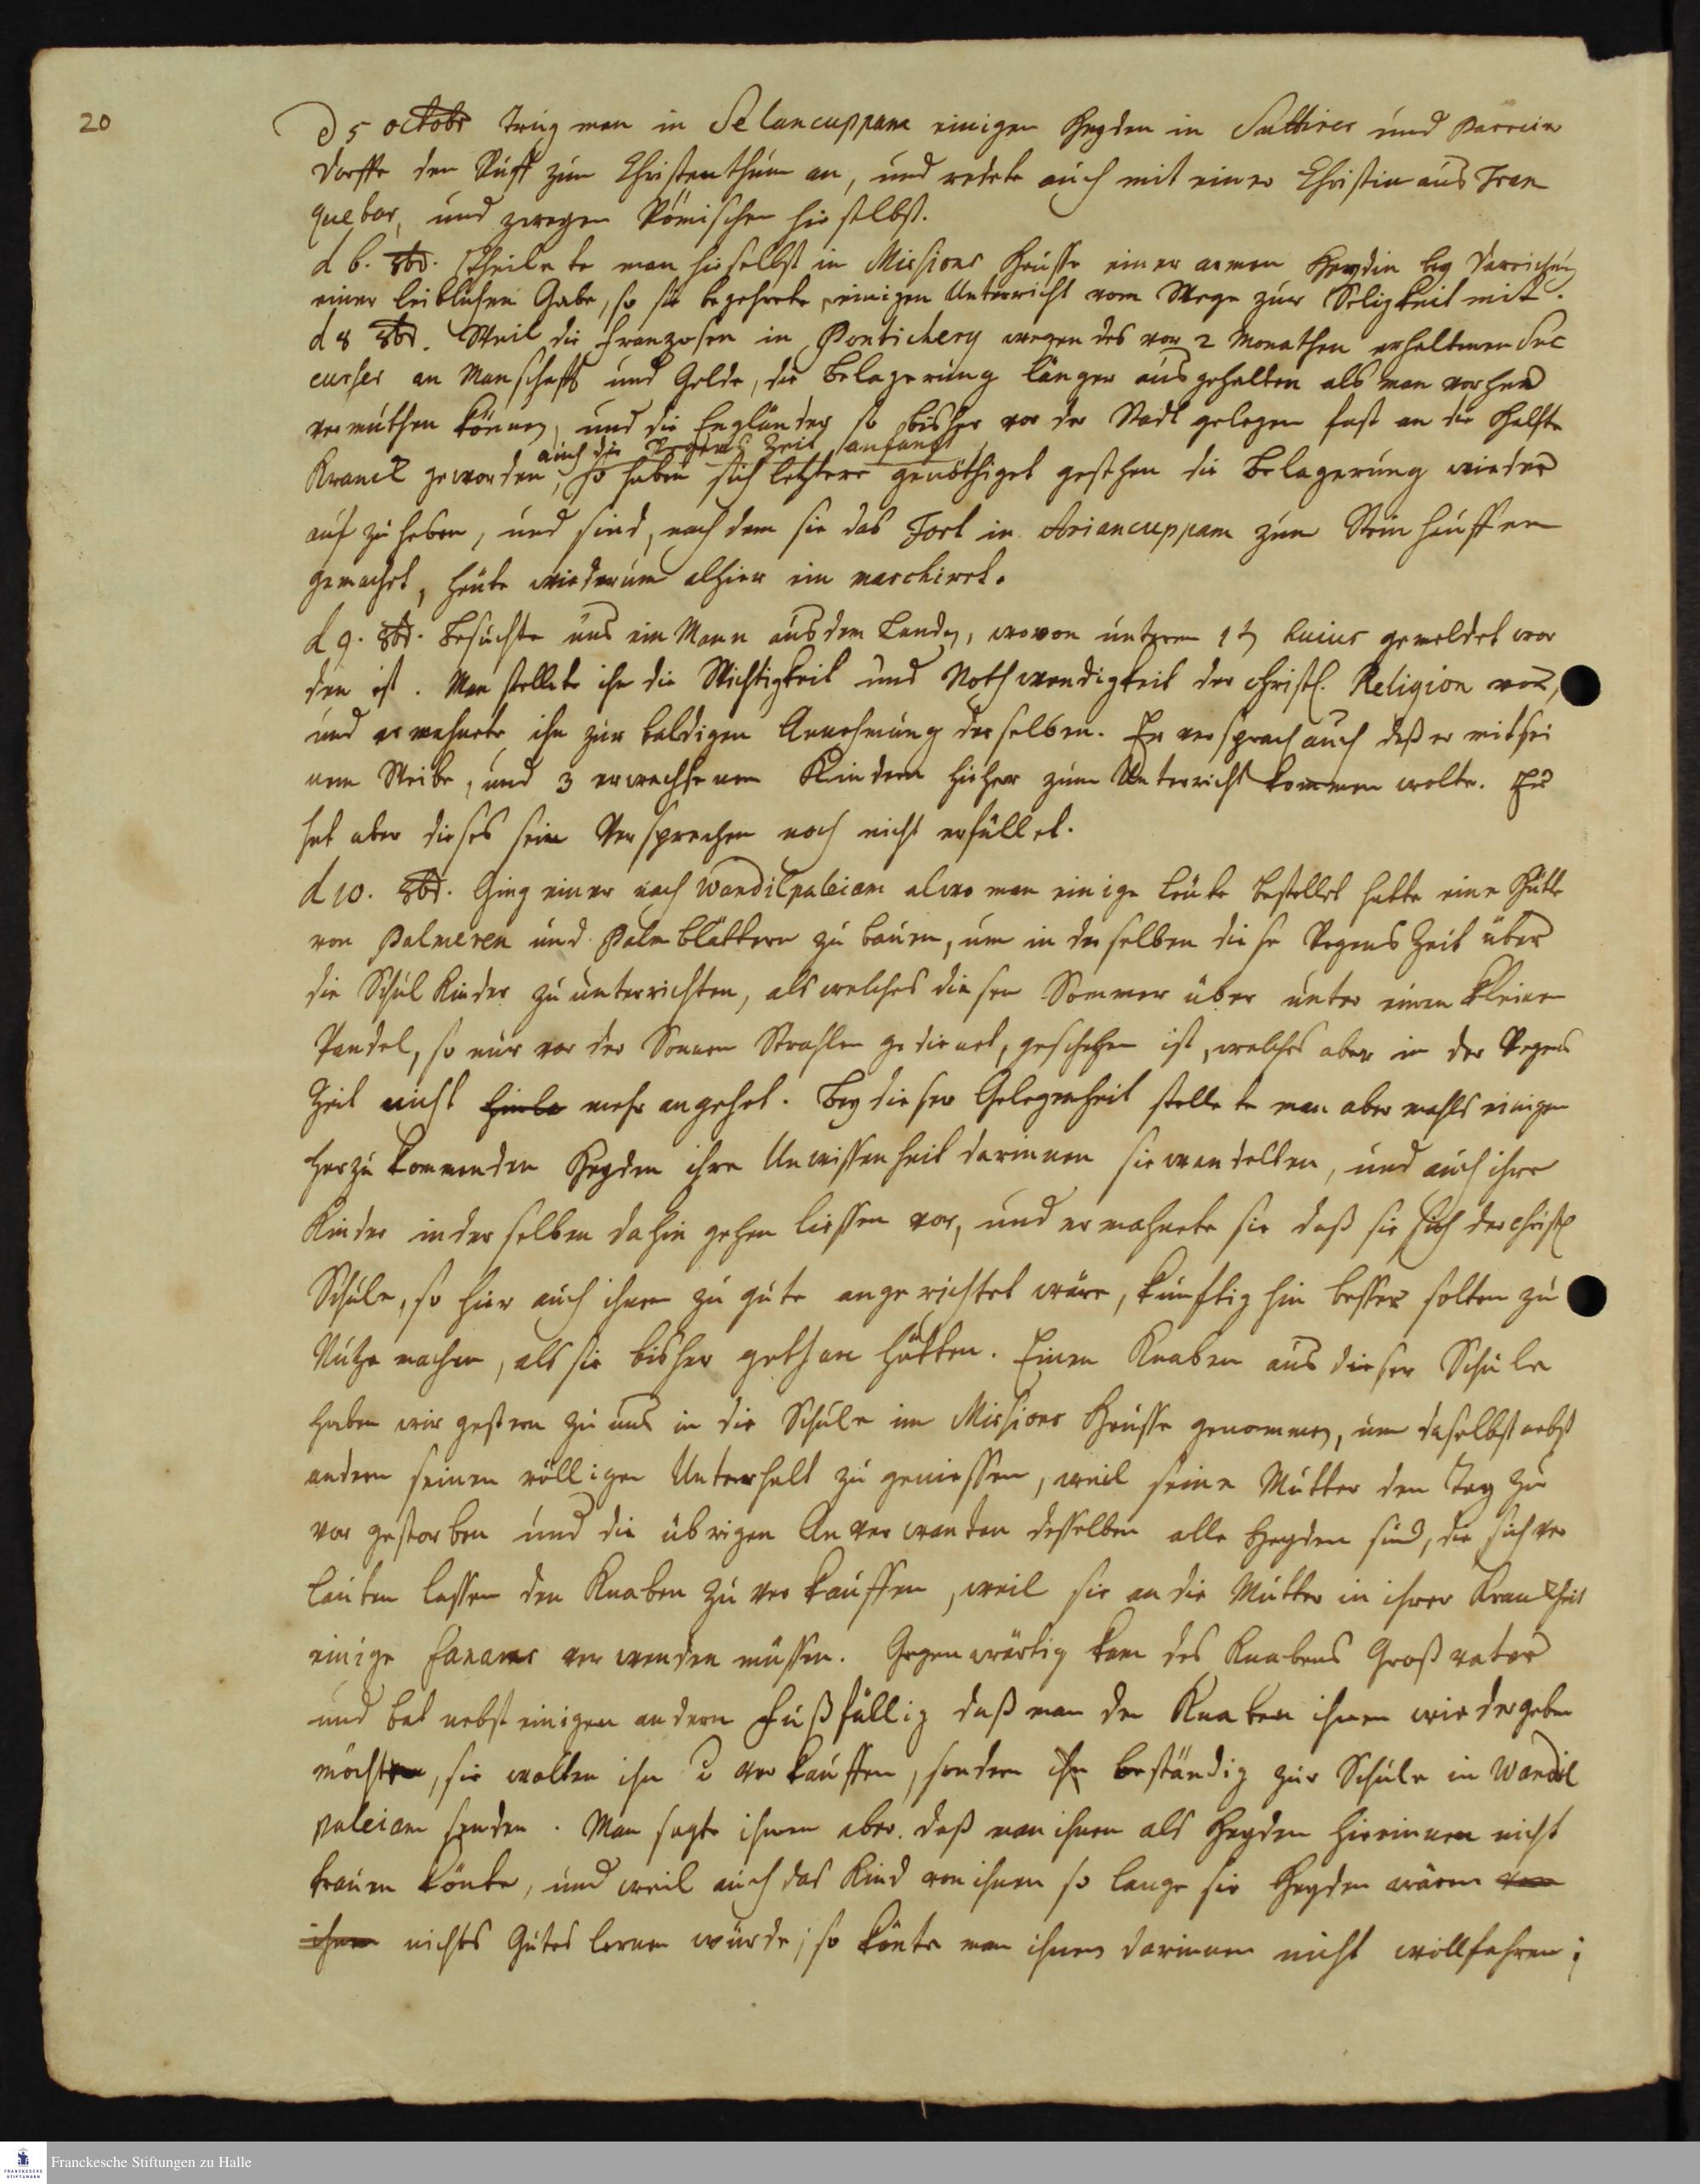 20
d 5 octobr trug man in Selancuppam einigen Heyden in Sattirer und Parreier
dorffe den Ruff zum Christenthum an, und redete auch mit einer Christin aus Tran
quebar, und zweyen Römischen hieselbst.
d 6. 8br. theilete man hieselbst in Missions Hausse einer armen Heydin bey Darreichung
einer leiblichen Gabe, so sie begehrete, einigen Unterricht vom Wege zur Seligkeit mit.
d 8 8br. Weil die Franzosen in Pontichery wegen des vor 2 Monathen erhaltenen Suc
curses an Manschafft und Gelde, die Belagerung länger ausgehalten als man vorher
vermuthen können, und die Engländer so bisher vor der Stadt gelegen fast an die Helfte
auch die Regens Zeit anfangt
Kranck geworden, so haben sich letztere genöthiget gesehen die Belagerung wieder
auf zu heben, und sind, nach dem sie das Fort in Ariancuppam zum Steinhauffen
gemacht, heute wiederum alhier ein marchiret.
d 9. 8br. Besuchte uns ein Mann aus dem Lande, wovon unterm 1t huius gemeldet wor
den ist. Man stellete ihm die Wichtigkeit und Nothwendigkeit der christl. Religion vor,
und ermahnete ihn zur baldigen Annehmung derselben. Er versprach auch daß er mit sei
nem Weibe, und 3 erwachsenen Kindern hieher zum Unterricht kommen wolte. Er
hat aber dieses sein Versprechen noch nicht erfüllet.
d 10. 8br. Ging einer nach Wandilpaleiam alwo man einige Leute bestellet hatte eine Hütte
von Palmeren und Palmblättern zu bauen, um in derselben diese Regens Zeit über
die Schul Kinder zu unterrichten, als welches diesen Sommer über unter einem kleinen
Pandel, so nur vor der Sonnen Strahlen gedienet, geschehen ist, welches aber in der Regens
Zeit nicht mehr angehet. Bey dieser Gelegenheit stellete man abermahls einigen
herzu kommenden Heyden ihre Unwissenheit darinnen sie wandelten, und auch ihre
Kinder in derselben dahin gehen liessen vor, und ermahnete sie daß sie sich der christl
Schule, so hier auch ihnen zu gute angerichtet wäre, künftig hin besser solten zu
Nutze machen, als sie bisher gethan hätten. Einen Knaben aus dieser Schule
haben wir gestern zu uns in die Schule im Missions Hausse genommen, um daselbst nebst
andern seinen völligen Unterhalt zu geniessen, weil seine Mutter den Tag zu
vor gestorben und die übrigen Anverwanten desselben alle Heyden sind, die sich ver
lauten lassen den Knaben zu verkauffen, weil sie an die Mutter in ihrer Kranckheit
einige fanams verwenden müssen. Gegenwärtig kam des Knabens Großvater
und bat nebst einigen andern fußfällig daß man den Knaben ihnen wiedergeben
möchte, sie wolten ihn verkauffen, sondern ihn beständig zur Schule in Wandil
paleiam senden. Man sagte ihnen aber. daß man ihnen als Heyden hierinnen nicht
trauen könte, und weil auch das Kind von ihnen so lange sie Heyden wären von
ihnen nichts Gutes lernen würde, so könte man ihnen darinnen nicht willfahren;
Franckesche Stiftungen zu Halle
FRANCKESCHE
STIFTUNGEN